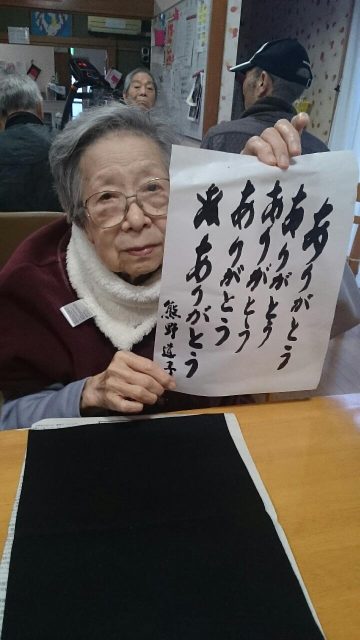 ありがとう
ありがとう
ありがとう
ありがとう
ありがとう
熊野道子